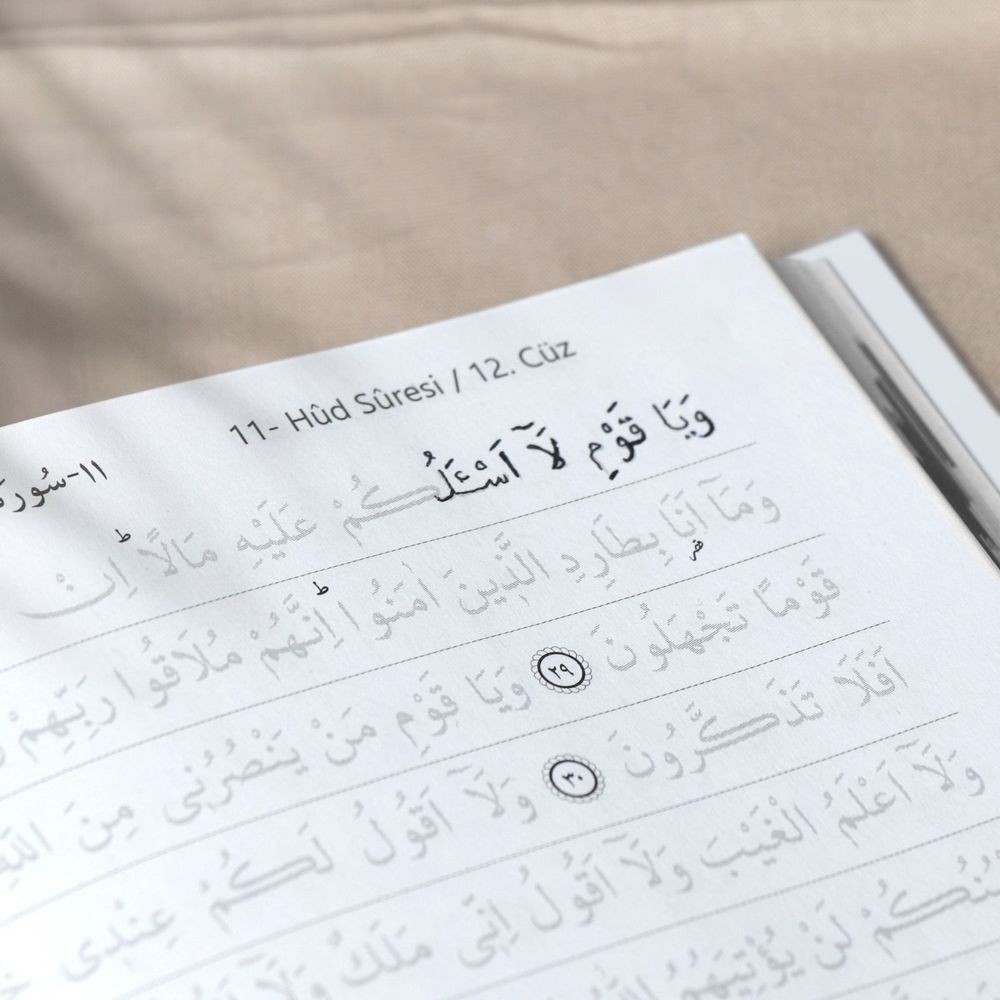 11- Hûd Sûresi / 12. Cüz
١١-سُورَة
وَيَا قَوْمِ لَآ اَسْـَٔلُكُمْ عَلَيْهِ مَالًاؕ اِنْ
وَمَآ اَنَا۬ بِطَارِدِ الَّذ۪ينَ اٰمَنُواؕ اِنَّهُمْ مُلَاقُوا رَبِّهِمْ
قَوْمًا تَجْهَلُونَ ﴿٢٩﴾ وَيَا قَوْمِ مَنْ يَنْصُرُن۪ى مِنَ اللّٰهِ
اَفَلَا تَذَكَّرُونَ ﴿٣٠﴾ وَلَآ اَقُولُ لَكُمْ عِنْد۪ى
وَلَآ اَعْلَمُ الْغَيْبَ وَلَآ اَقُولُ اِنّ۪ى مَلَكٌ وَلَآ
لَنْ يُؤْتِيَهُمُ اللّٰهُ